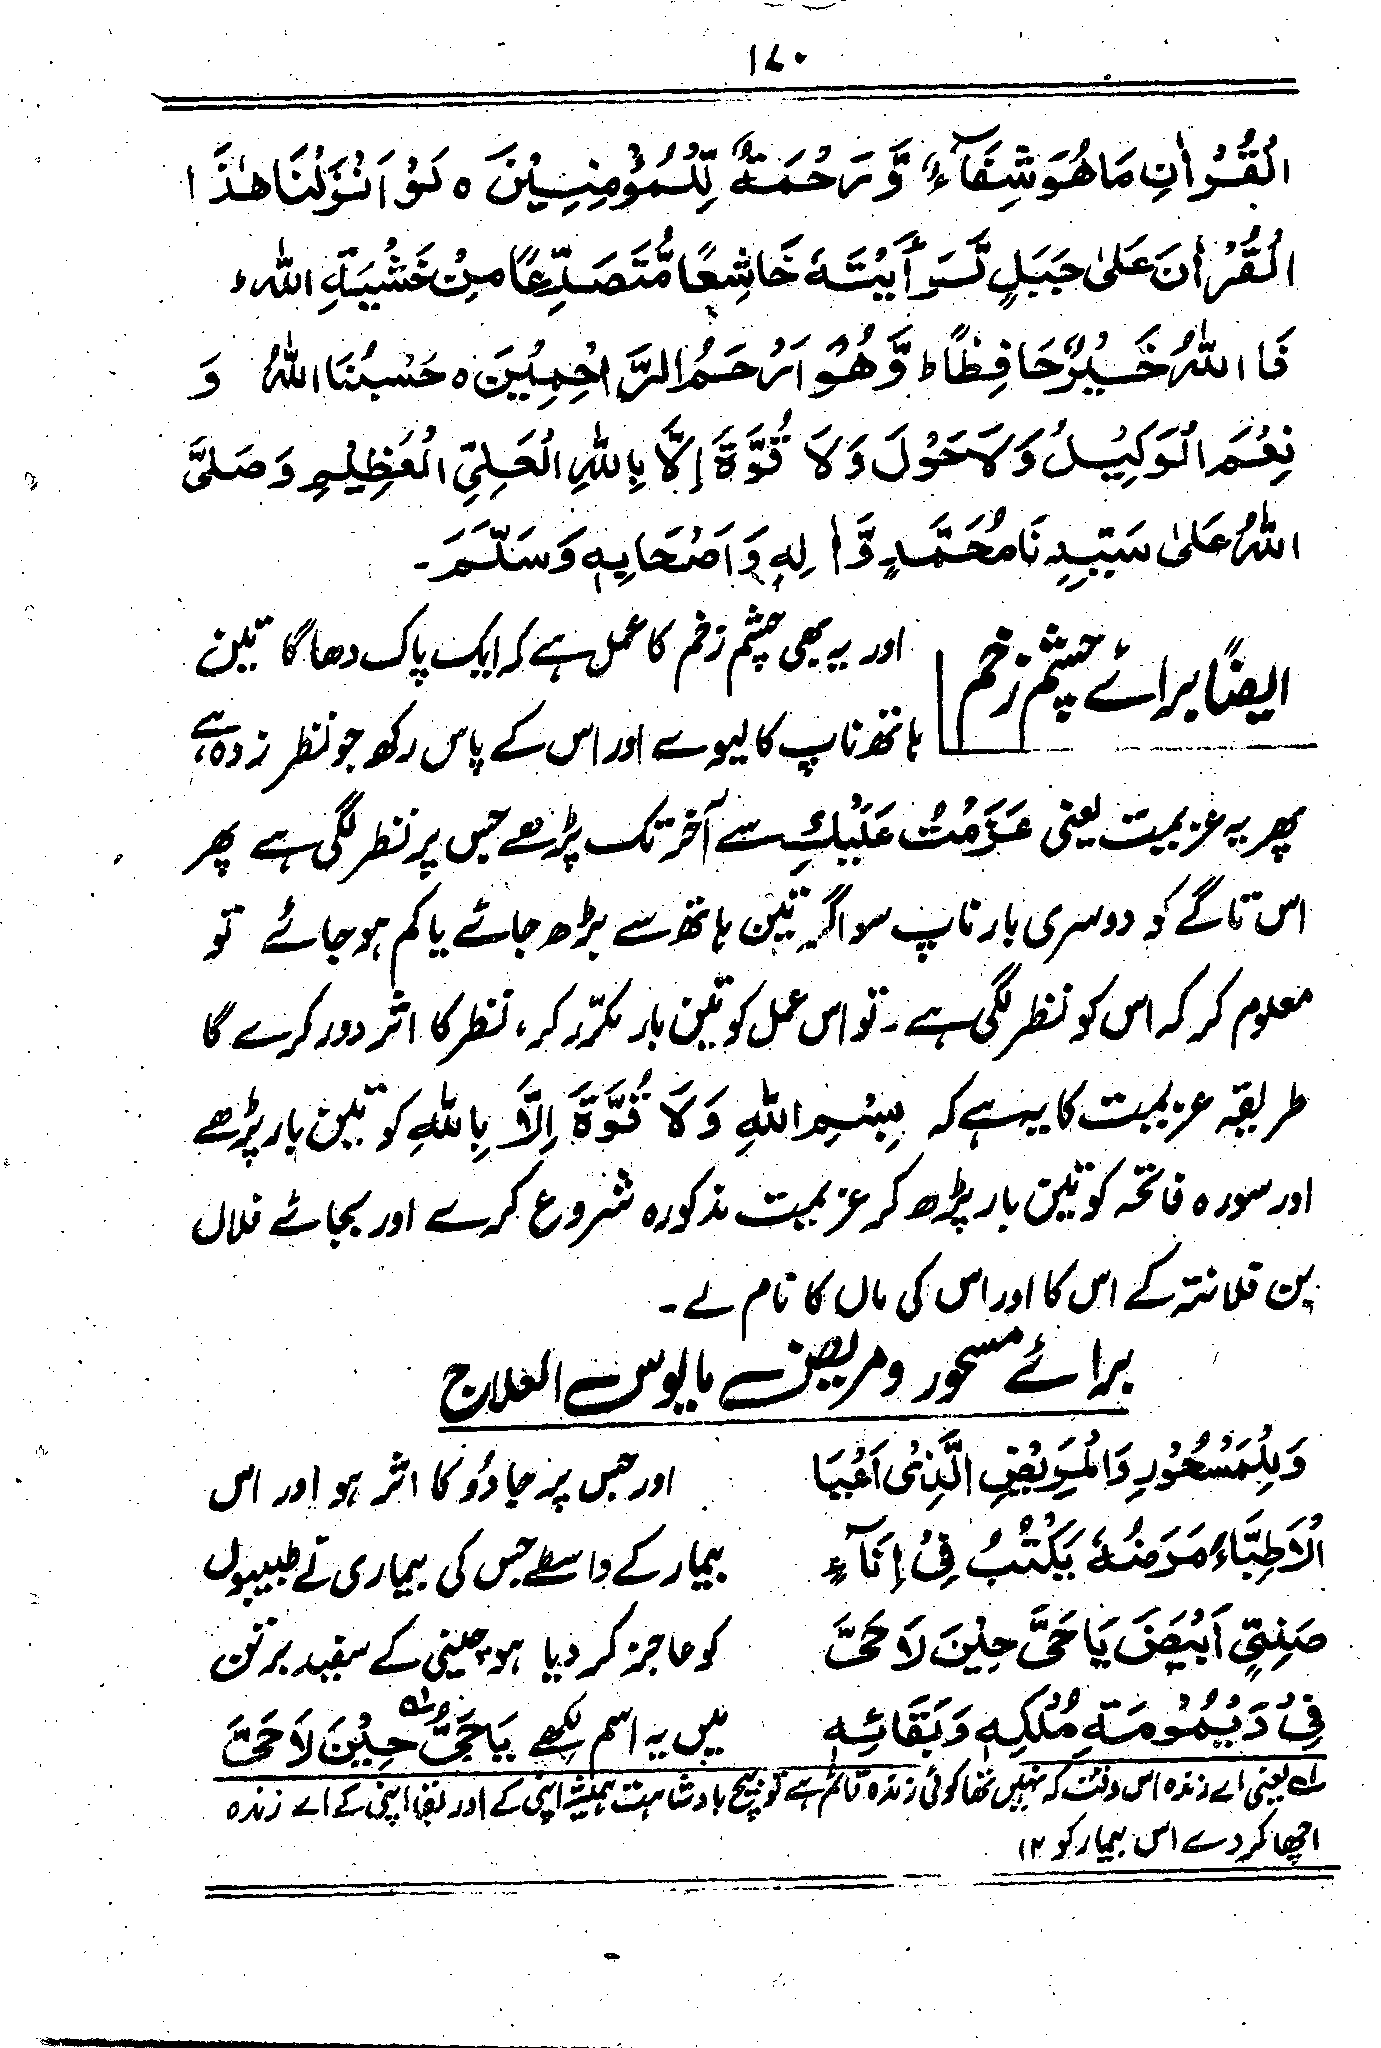 ۱۷۰
الْقُرْاٰنِ مَا هُوَ شِفَآءٌ وَّ رَحْمَةٌ لِّلْمُؤْمِنِيْنَ ٥ لَوْ اَنْزَلْنَا هٰذَا
الْقُرْاٰنَ عَلٰى جَبَلٍ لَّرَاَيْتَهٗ خَاشِعًا مُّتَصَدِّعًا مِنْ خَشْيَةِ اللهِ ؕ
فَا اللهُ خَيْرٌ حَافِظًا ؕ وَّ هُوَ اَرْحَمُ الرَّاحِمِيْنَ ٥ حَسْبُنَا اللهُ وَ
نِعْمَ الْوَكِيْلُ وَلَا حَوْلَ وَلَا قُوَّةَ اِلَّا بِاللهِ الْعَلِيِّ الْعَظِيْمِ وَصَلَّى
اللهُ عَلٰى سَيِّدِنَا مُحَمَّدٍ وَّاٰلِهٖ وَاَصْحَابِهٖ وَسَلَّمَ ۔
ایضًا برائے چشم زخم
اور یہ بھی چشم زخم کا عمل ہے کہ ایک پاک دھاگا تین
ہاتھ ناپ کا لیوے اور اس کے پاس رکھ جو نظر زدہ ہے،
پھر یہ عزیمت یعنی عَزَمْتُ عَلَيْكِ سے آخر تک پڑھے جس پر نظر لگی ہے پھر
اس تاگے کو دوسری بار ناپ سو اگر تین ہاتھ سے بڑھ جائے یا کم ہو جائے تو
معلوم کر کہ اس کو نظر لگی ہے ۔ تو اس عمل کو تین بار مکرّر کر، نظر کا اثر دور کرے گا
طریقہ عزیمت کا یہ ہے کہ بِسْمِ اللهِ وَلَا قُوَّةَ اِلَّا بِاللهِ کو تین بار پڑھے
اور سورہ فاتحہ کو تین بار پڑھ کر عزیمت مذکورہ شروع کرے اور بجائے فلاں
بن فلانتہ کے اس کا اور اس کی ماں کا نام لے ۔
برائے مسحور و مریض مایوس العلاج
وَلِلْمَسْحُوْرِ وَالْمَرِيْضِ الَّذِيْ اَعْيَا
الْاَطِبَّاءَ مَرَضُهٗ يَكْتُبُ فِيْ اِنَآءٍ
صِيْنِيٍّ اَبْيَضَ يَا حَيُّ حِيْنَ لَا حَيَّ
فِيْ دَيْمُوْمَةِ مُلْكِهٖ وَبَقَائِهٖ
اور جس پر جادُو کا اثر ہو اور اس
بیمار کے واسطے جس کی بیماری نے طبیبوں
کو عاجز کر دیا ہو چینی کے سفید برتن
میں یہ اسم لکھے يَا حَيُّ حِيْنَ لَا حَيَّ
لہ یعنی اے زندہ اس وقت کہ نہیں تھا کوئی زندہ قائم ہے تو بیچ بادشاہت ہمیشہ اپنی کے اور بقا اپنی کے اے زندہ
اچھا کر دے اس بیمار کو ۱۲